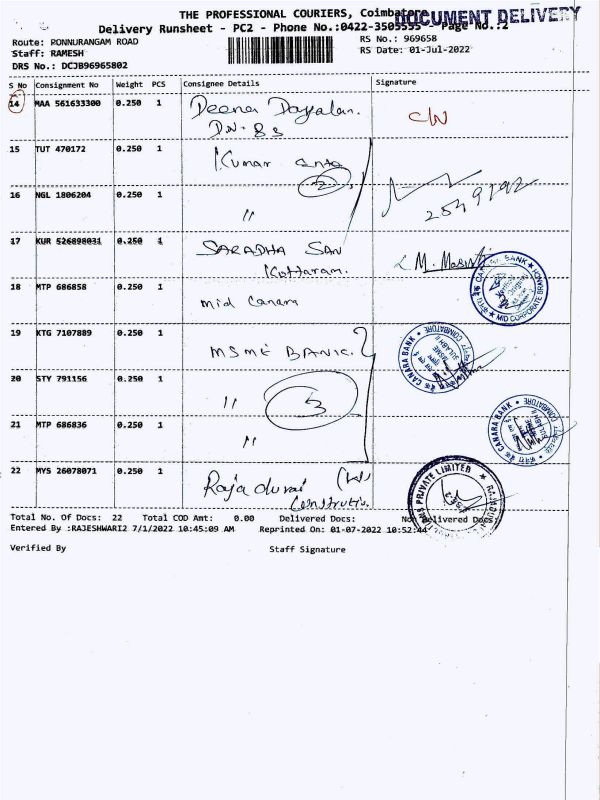 THE PROFESSIONAL COURIERS, Coimbatore
DOCUMENT DELIVERY
Delivery Runsheet - PC2 - Phone No.:0422-3505555 - Page No.:2
Route: PONNURANGAM ROAD
RS No.: 969658
Staff: RAMESH
RS Date: 01-Jul-2022
DRS No.: DCJB96965802
S No Consignment No Weight PCS Consignee Details Signature
14 MAA 561633300 0.250 1 Deena Dayalan.
15 TUT 470172 0.250 1 Kumar
2
16 NGL 1806204 0.250 1 "
2539192
17 KUR 526898031 0.250 1 SARADHA SAN
Kottaram.
18 MTP 686858 0.250 1 mid Canara
CANARA BANK
MID CORPORATE BRANCH
19 KTG 7107889 0.250 1 MSME BANK
CANARA BANK COIMBATORE
20 STY 791156 0.250 1 " 3
21 MTP 686836 0.250 1 "
CANARA BANK COIMBATORE
22 MYS 26078071 0.250 1 Raja durai
PRIVATE LIMITED
Total No. Of Docs: 22 Total COD Amt: 0.00 Delivered Docs: Non Delivered Docs:
Entered By :RAJESHWARI2 7/1/2022 10:45:09 AM Reprinted On: 01-07-2022 10:52:44
Verified By Staff Signature